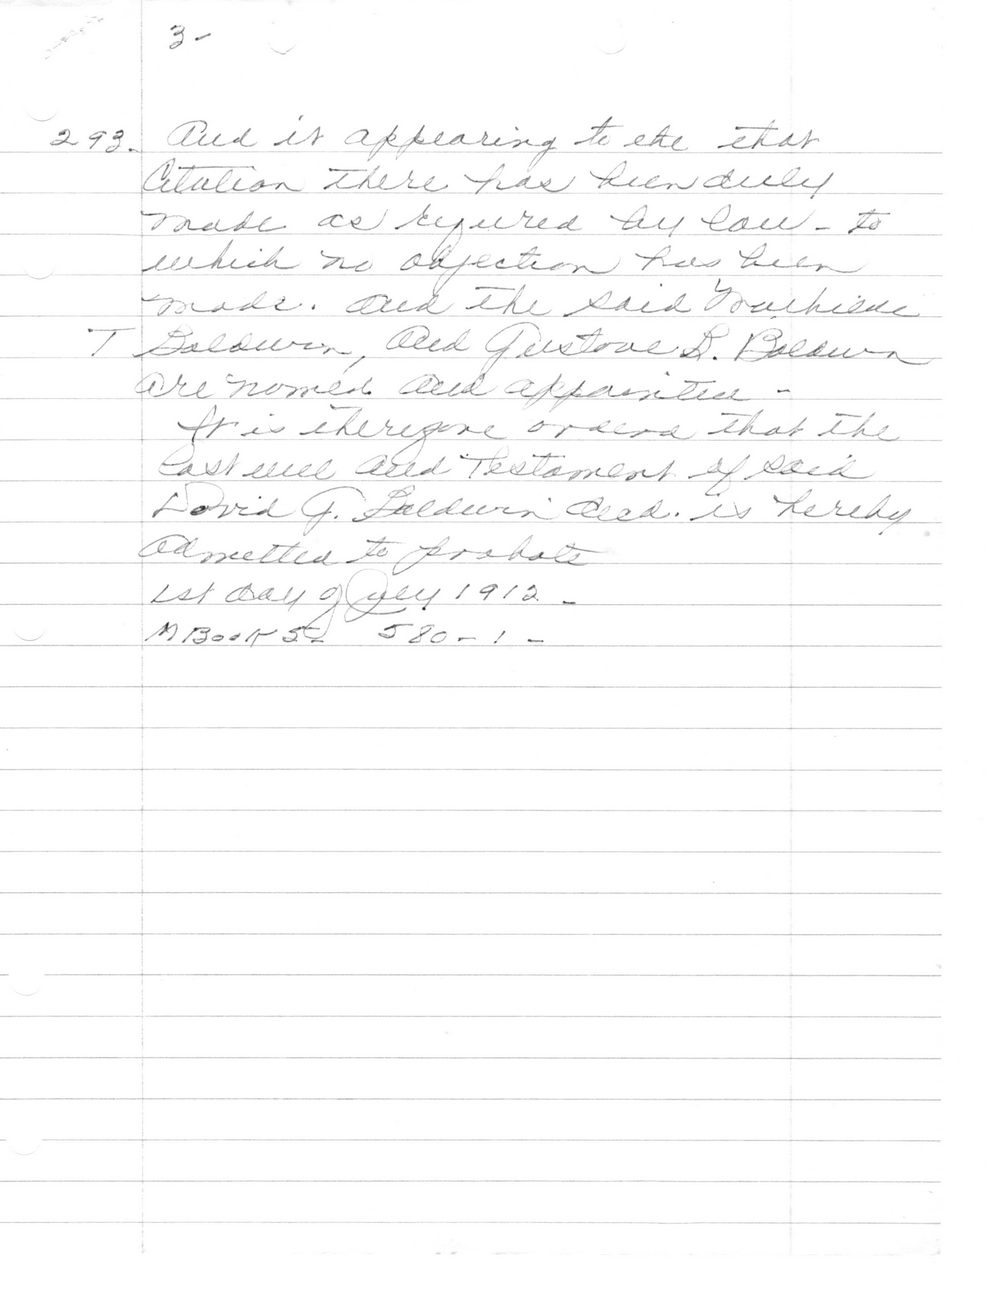 3-
293. And it appearing to the that
Citation there has been duly
made as required by law - to
which no objection has been
made. And the said Mathilde
T Baldwin, And Gustave B. Baldwin
are named and appointed -
It is therefore ordered that the
Last will and Testament of said
David G. Baldwin decd. is hereby
admitted to probate
1st day of July 1912 -
M Book 5- 580-1-